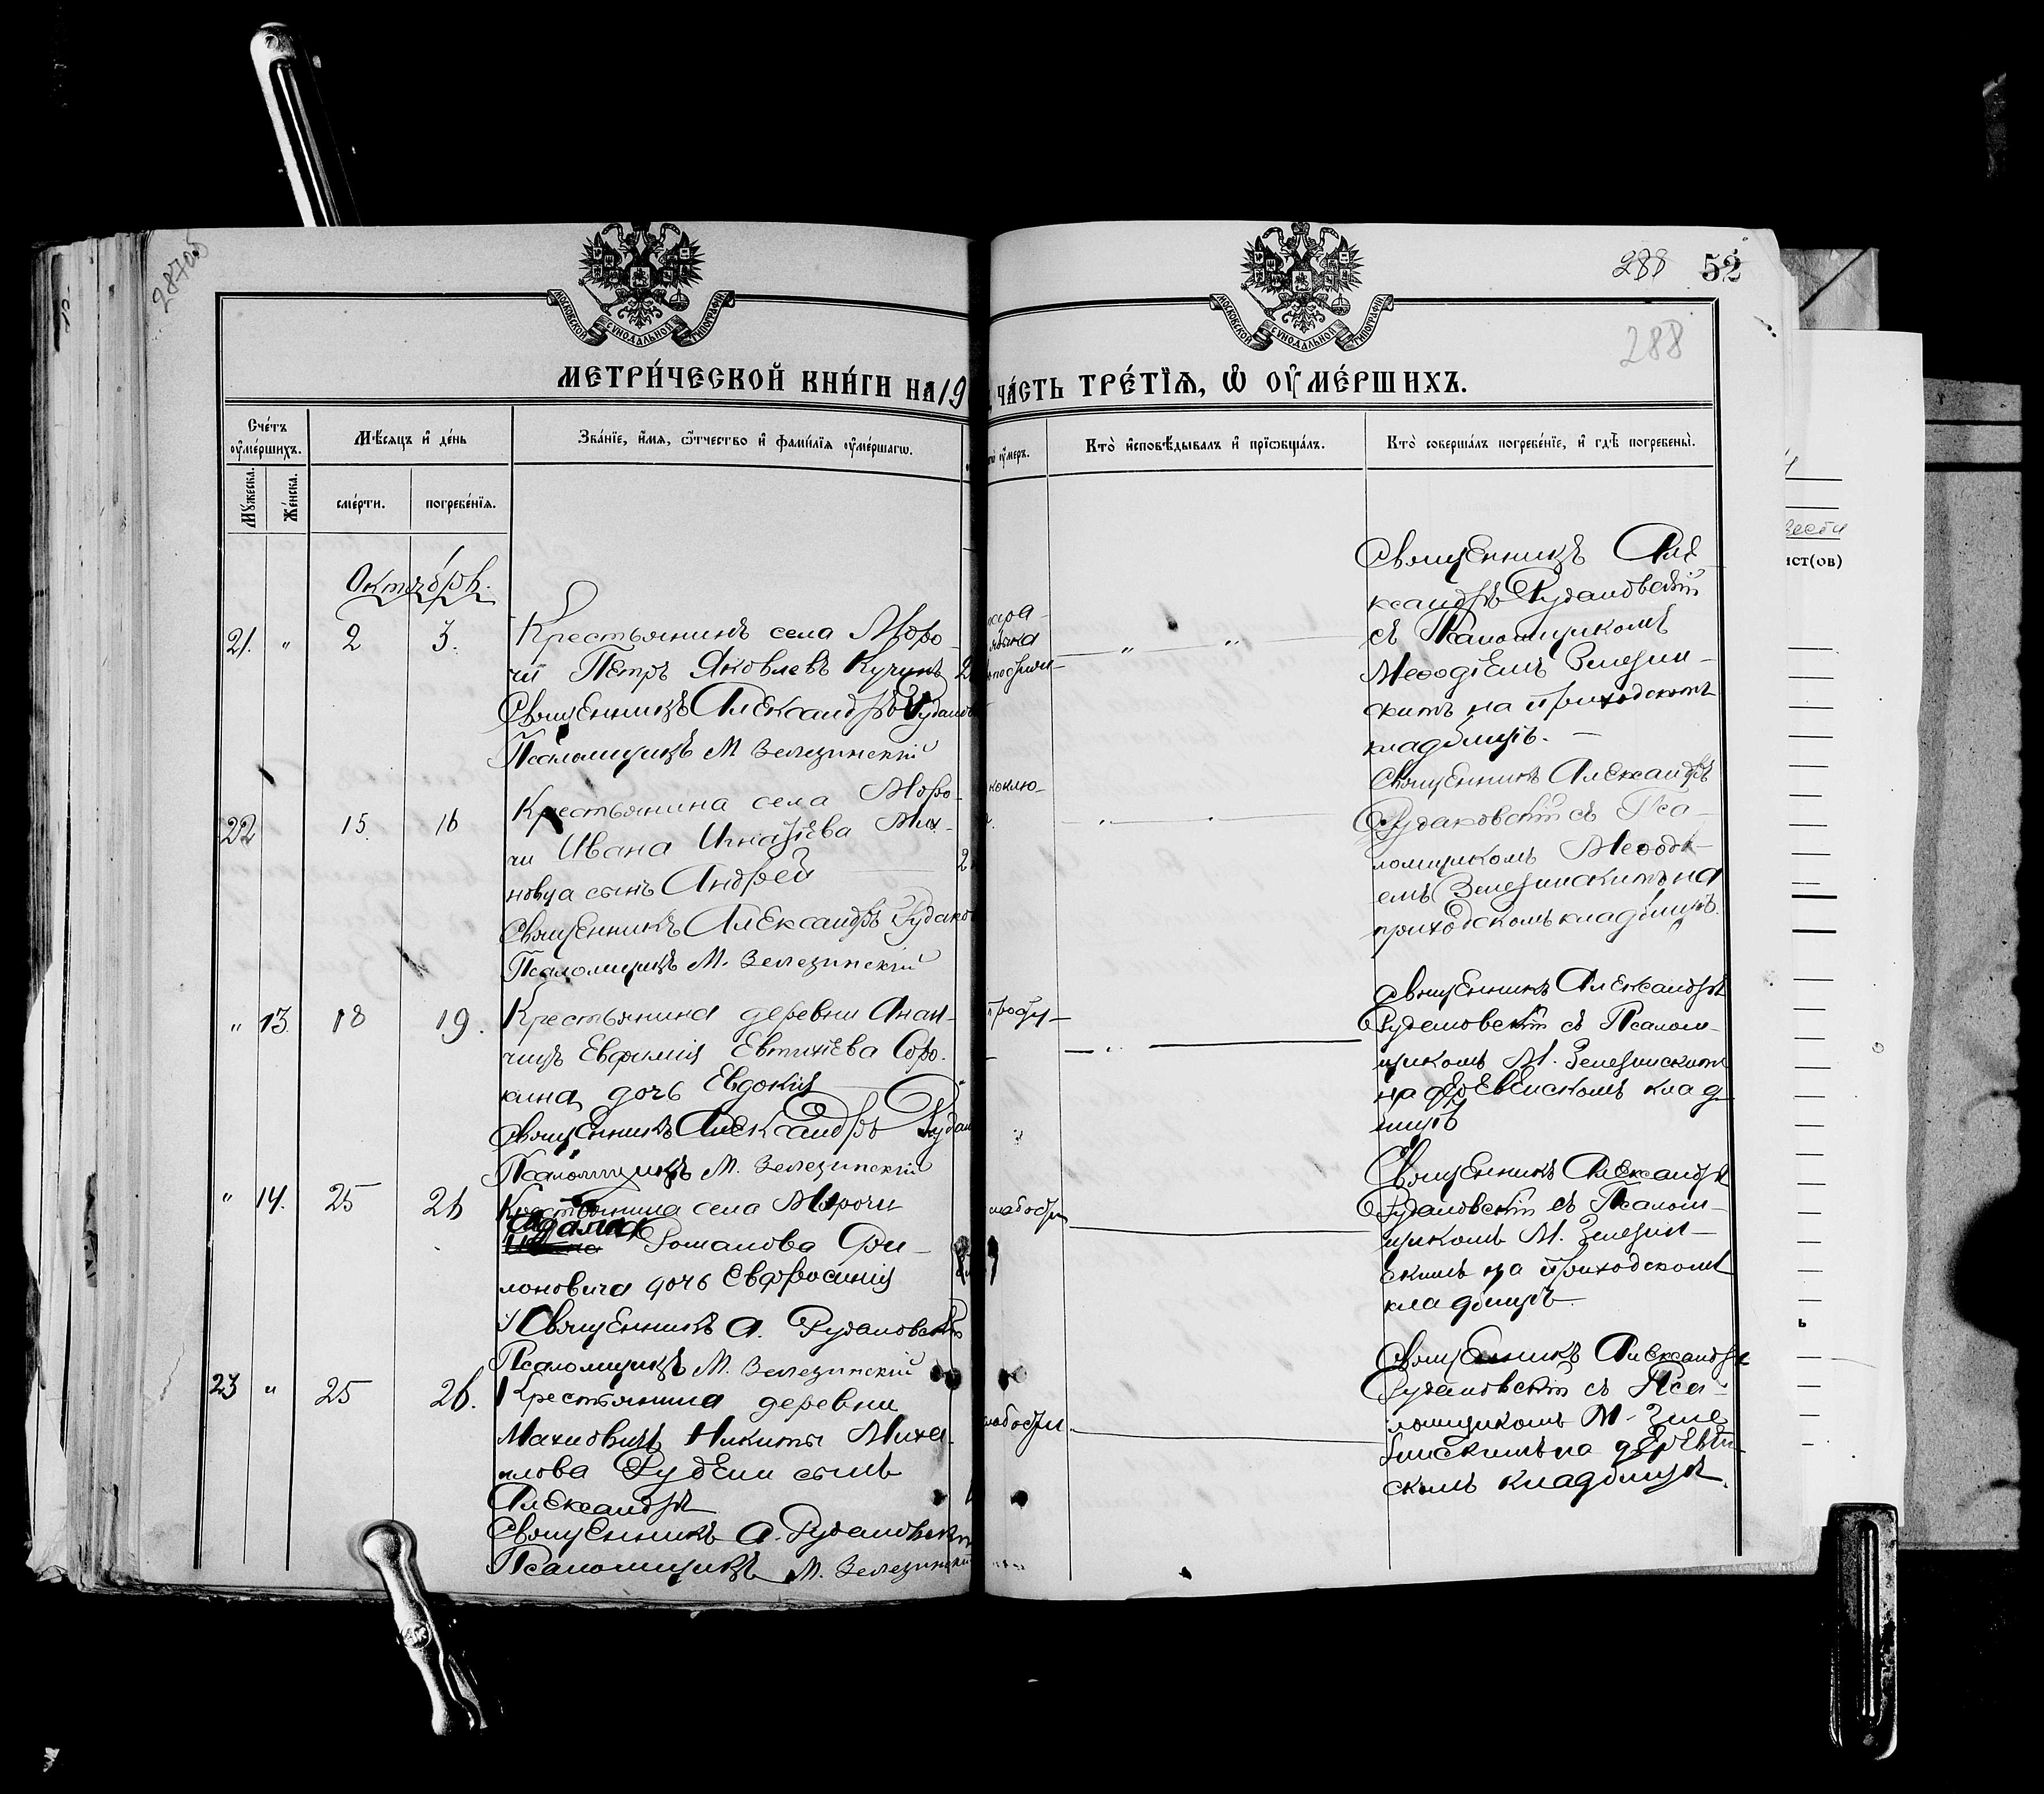 287об
288 52
288
МОСКОВСКОЙ СѴНОДАЛЬНОЙ ТИПОГРАФІИ
МОСКОВСКОЙ СѴНОДАЛЬНОЙ ТИПОГРАФІИ
МЕТРИ́ЧЕСКОЙ КНИ́ГИ НА 19
ЧА́СТЬ ТРЕ́ТЇѦ, Ѽ ОУ҆МЕ́РШИХЪ.
Сче́тъ оу҆ме́ршихъ.
Мꙋ́жеска.
Же́нска.
Мѣ́сѧцъ и҆ де́нь
сме́рти.
погребе́нїѧ.
Зва́нїе, и҆́мѧ, ѻ҆́тчество и҆ фами́лїѧ оу҆ме́ршагѡ.
оу҆́меръ.
Кто̀ и҆сповѣ́дывалъ и҆ прїѡбща́лъ.
Кто̀ соверша́лъ погребе́нїе, и҆ гдѣ̀ погребены̀.
Октябрь.
21. " 2 3.
Крестьянинъ села Моро-
чи Петръ Яковлевъ Кучунъ
Священникъ Александръ Рудано
Псаломщикъ М Зелезинскій
Священникъ Але-
ксандръ Рудановскій
съ Псаломщикомъ
Меѳодіемъ Зелезин-
скимъ на приходскомъ
кладбищѣ. —
22 15. 16
Крестьянина села Моро-
чи Ивана Игнатіева Мих-
новца сынъ Андрей
Священникъ Александръ Рудано
Псаломщикъ М. Зелезинскій
коклю-
Священникъ Александръ
Рудановскій съ Пса-
ломщикомъ Меѳоді-
емъ Зелезинскимъ на
приходскомъ кладбищѣ.
" 13 18 19.
Крестьянина деревни Анан-
чицъ Евфимія Евтихіева Соро-
кина дочь Евдокія
Священникъ Александръ Рудан
Псаломщикъ М. Зелезинскій
Священникъ Александръ
Рудановскій съ Псалом-
щикомъ М. Зелезинскимъ
на деревенскомъ клад
бищѣ
" 14. 25 26
Крестьянина села Морочи
Адама Романова Фи-
лоновича дочь Евфросинія
Священникъ А. Рудановскій
Псаломщикъ М. Зелезинскій
Священникъ Александръ
Рудановскій съ Псалом-
щикомъ М. Зелезин-
скимъ на приходскомъ
кладбищѣ.
23 " 25 26.
Крестьянина деревни
Махновичъ Никиты Миха-
илова Рудени сынъ
Александръ
Священникъ А. Рудановскій
Псаломщикъ М. Зелезинскій
Священникъ Александръ
Рудановскій съ Пса-
ломщикомъ М. Зеле
зинскимъ на деревен-
скомъ кладбищѣ.
ист(ов)